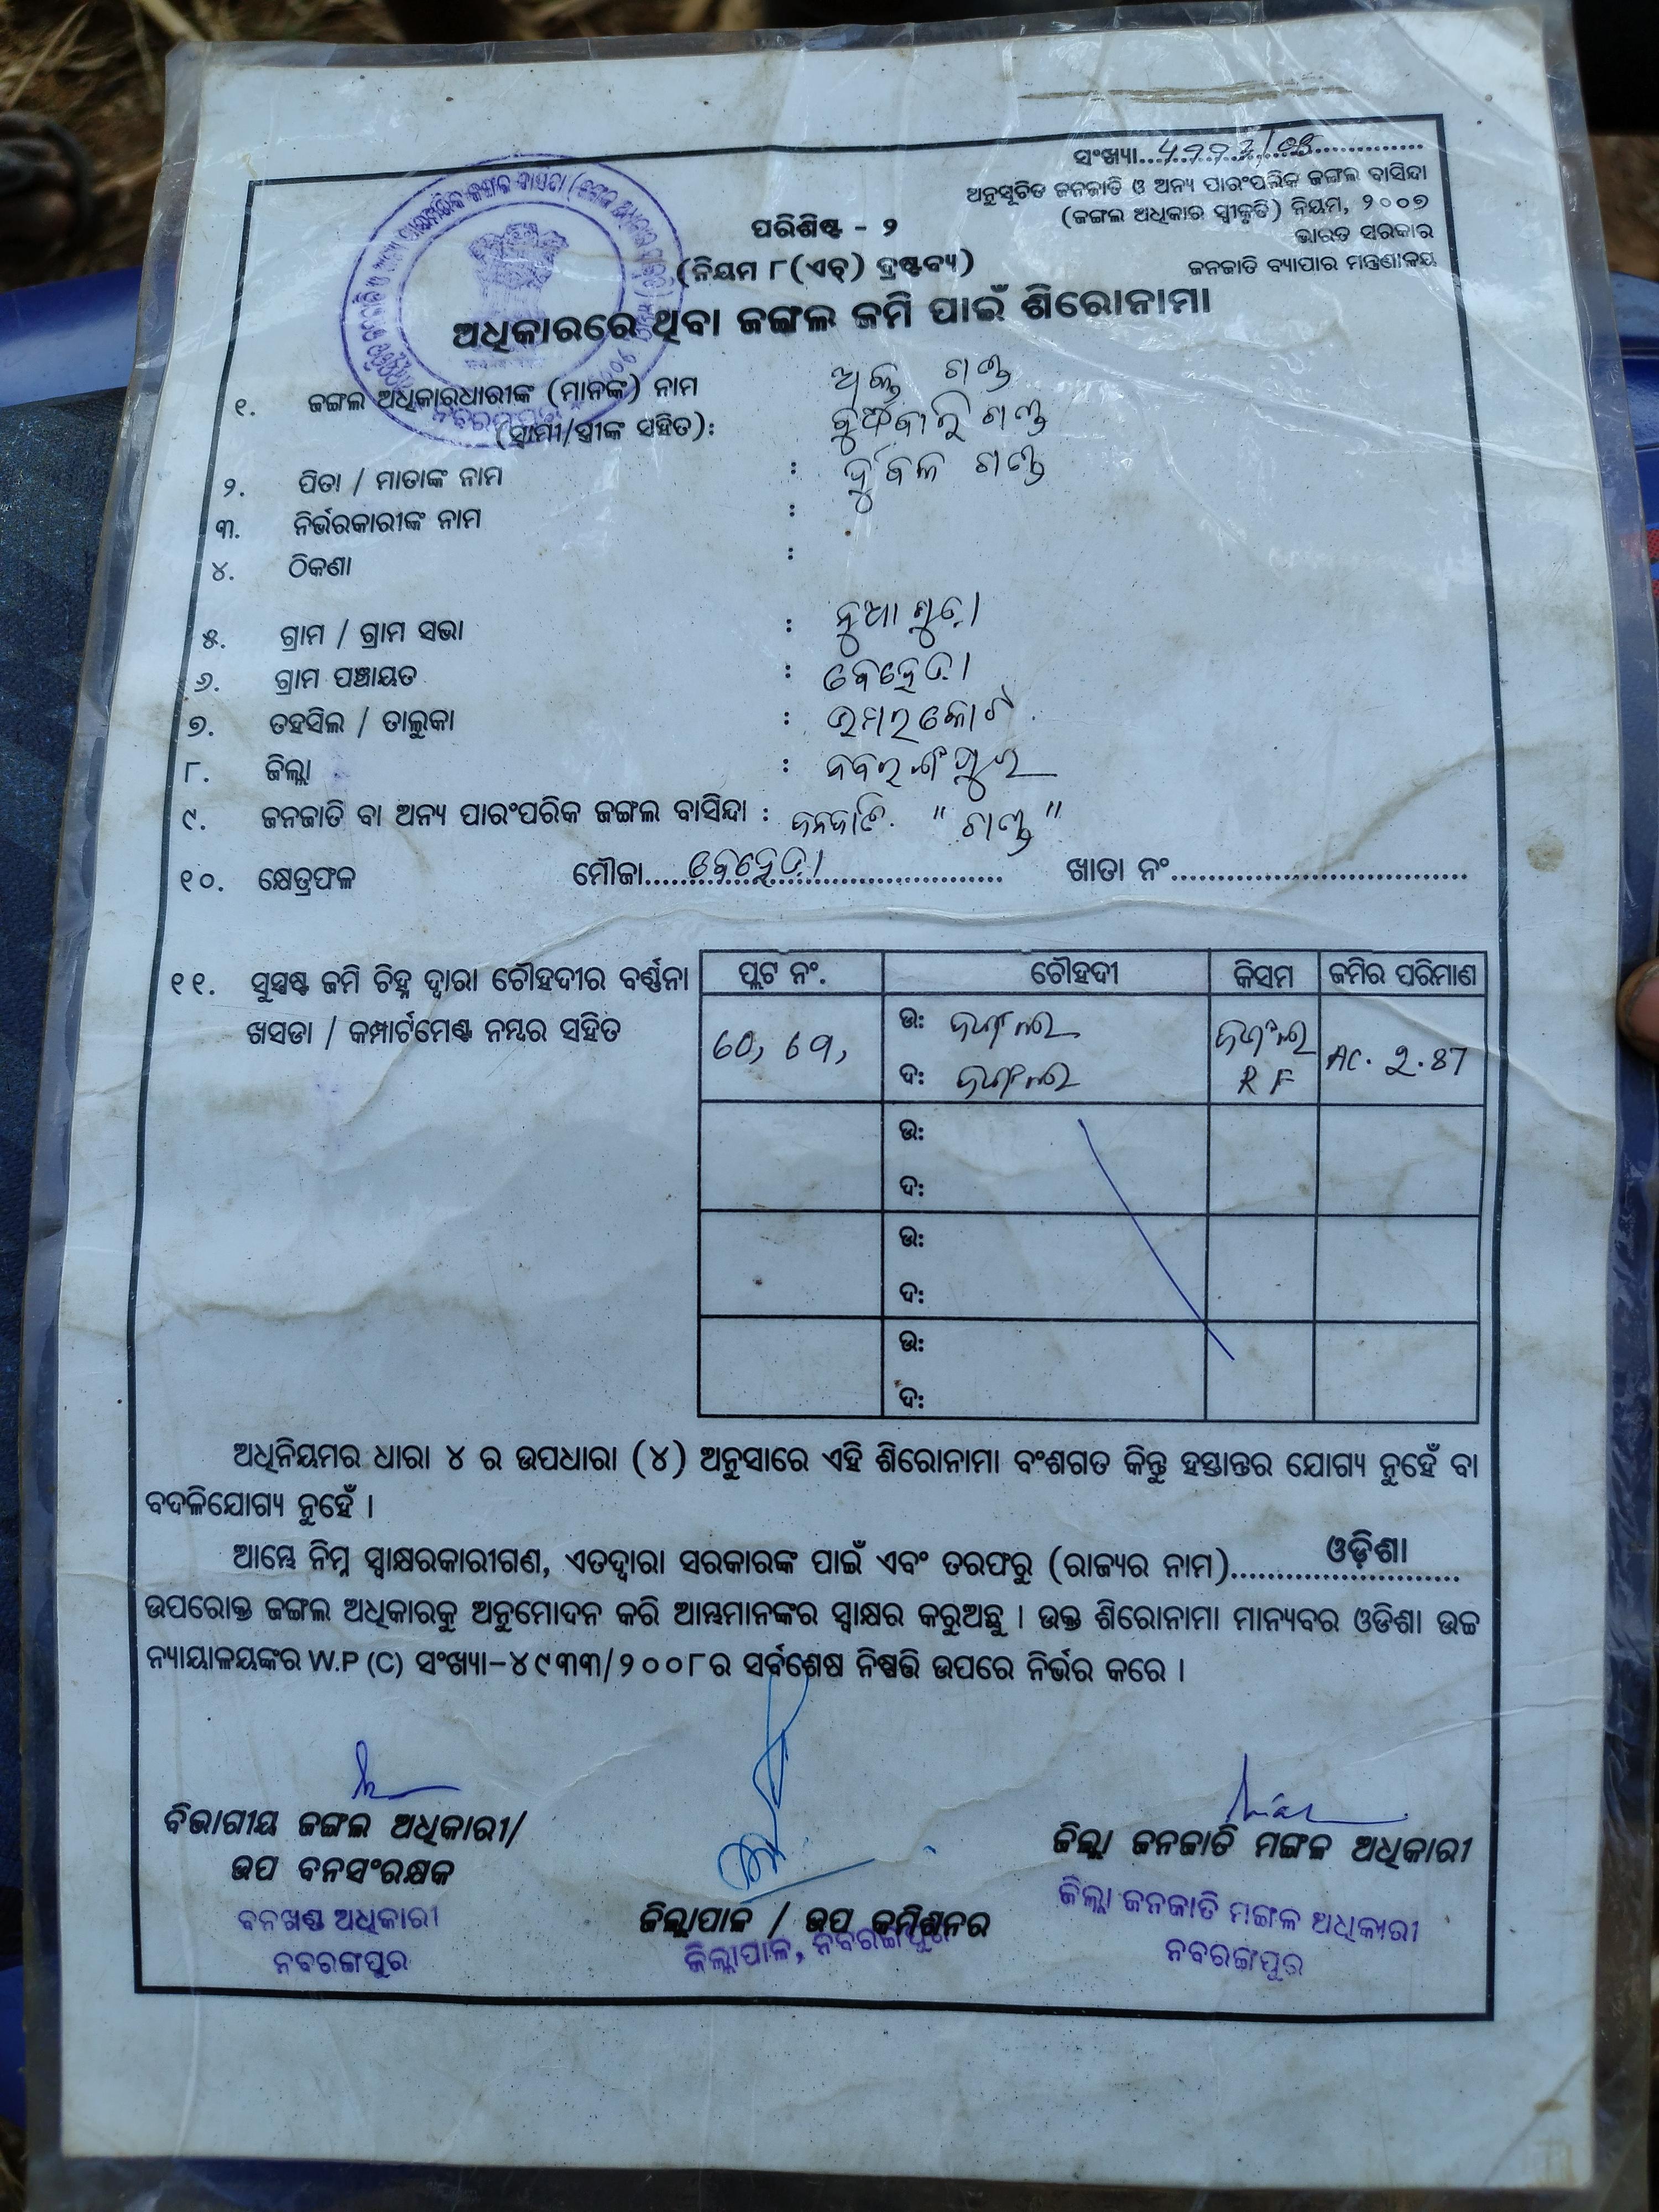 ସଂଖ୍ୟା
ଅନୁସୂଚିତ ଜନଜାତି ଓ ଅନ୍ୟ ପାରଂପରିକ ଜଙ୍ଗଲ ବାସିନ୍ଦା
(ଜଙ୍ଗଲ ଅଧିକାର ସ୍ୱୀକୃତି) ନିୟମ, ୨୦୦୭
ଭାରତ ସରକାର
ଜନଜାତି ବ୍ୟାପାର ମନ୍ତ୍ରଣାଳୟ
ପରିଶିଷ୍ଟ - ୨
(ନିୟମ ୮(ଏଚ୍) ଦ୍ରଷ୍ଟବ୍ୟ)
ଅଧିକାରରେ ଥିବା ଜଙ୍ଗଲ ଜମି ପାଇଁ ଶିରୋନାମା
୧. ଜଙ୍ଗଲ ଅଧିକାରଧାରୀଙ୍କ (ମାନଙ୍କ) ନାମ ଗଣ୍ଡ
(ସ୍ୱାମୀ/ସ୍ତ୍ରୀଙ୍କ ସହିତ): ଗଣ୍ଡ
୨. ପିତା / ମାତାଙ୍କ ନାମ : ଦୁର୍ବଳ ଗଣ୍ଡ
୩. ନିର୍ଭରକାରୀଙ୍କ ନାମ :
୪. ଠିକଣା :
୫. ଗ୍ରାମ / ଗ୍ରାମ ସଭା : ନୁଆଗୁଡ଼ା
୬. ଗ୍ରାମ ପଞ୍ଚାୟତ : ବେହେଡ଼ା
୭. ତହସିଲ / ତାଲୁକା : ଉମରକୋଟ
୮. ଜିଲ୍ଲା : ନବରଙ୍ଗପୁର
୯. ଜନଜାତି ବା ଅନ୍ୟ ପାରଂପରିକ ଜଙ୍ଗଲ ବାସିନ୍ଦା : ଜନଜାତି "ଗଣ୍ଡ"
୧୦. କ୍ଷେତ୍ରଫଳ ମୌଜା.....ବେହେଡ଼ା..... ଖାତା ନଂ.....
୧୧. ସୁସ୍ପଷ୍ଟ ଜମି ଚିହ୍ନ ଦ୍ୱାରା ଚୌହଦୀର ବର୍ଣ୍ଣନା
ଖସଡା / କମ୍ପାର୍ଟମେଣ୍ଟ ନମ୍ବର ସହିତ
ପ୍ଲଟ ନଂ. ଚୌହଦୀ କିସମ ଜମିର ପରିମାଣ
ଉ: ଜଙ୍ଗଲ ଜଙ୍ଗଲ AC. 2.87
ଦ: ଜଙ୍ଗଲ RF
ଉ:
ଦ:
ଉ:
ଦ:
ଉ:
ଦ:
ଅଧିନିୟମର ଧାରା ୪ ର ଉପଧାରା (୪) ଅନୁସାରେ ଏହି ଶିରୋନାମା ବଂଶଗତ କିନ୍ତୁ ହସ୍ତାନ୍ତର ଯୋଗ୍ୟ ନୁହେଁ ବା
ବଦଳିଯୋଗ୍ୟ ନୁହେଁ ।
ଆମ୍ଭେ ନିମ୍ନ ସ୍ୱାକ୍ଷରକାରୀଗଣ, ଏତଦ୍ୱାରା ସରକାରଙ୍କ ପାଇଁ ଏବଂ ତରଫରୁ (ରାଜ୍ୟର ନାମ).....ଓଡ଼ିଶା.....
ଉପରୋକ୍ତ ଜଙ୍ଗଲ ଅଧିକାରକୁ ଅନୁମୋଦନ କରି ଆମ୍ଭମାନଙ୍କର ସ୍ୱାକ୍ଷର କରୁଅଛୁ । ଉକ୍ତ ଶିରୋନାମା ମାନ୍ୟବର ଓଡିଶା ଉଚ୍ଚ
ନ୍ୟାୟାଳୟଙ୍କର W.P (C) ସଂଖ୍ୟା-୪୯୩୩/୨୦୦୮ର ସର୍ବଶେଷ ନିଷ୍ପତ୍ତି ଉପରେ ନିର୍ଭର କରେ ।
ବିଭାଗୀୟ ଜଙ୍ଗଲ ଅଧିକାରୀ/
ଉପ ବନସଂରକ୍ଷକ
ବନଖଣ୍ଡ ଅଧିକାରୀ
ନବରଙ୍ଗପୁର
ଜିଲ୍ଲାପାଳ / ଉପ କମିଶନର
ଜିଲ୍ଲାପାଳ, ନବରଙ୍ଗପୁର
ଜିଲ୍ଲା ଜନଜାତି ମଙ୍ଗଳ ଅଧିକାରୀ
ଜିଲ୍ଲା ଜନଜାତି ମଙ୍ଗଳ ଅଧିକାରୀ
ନବରଙ୍ଗପୁର